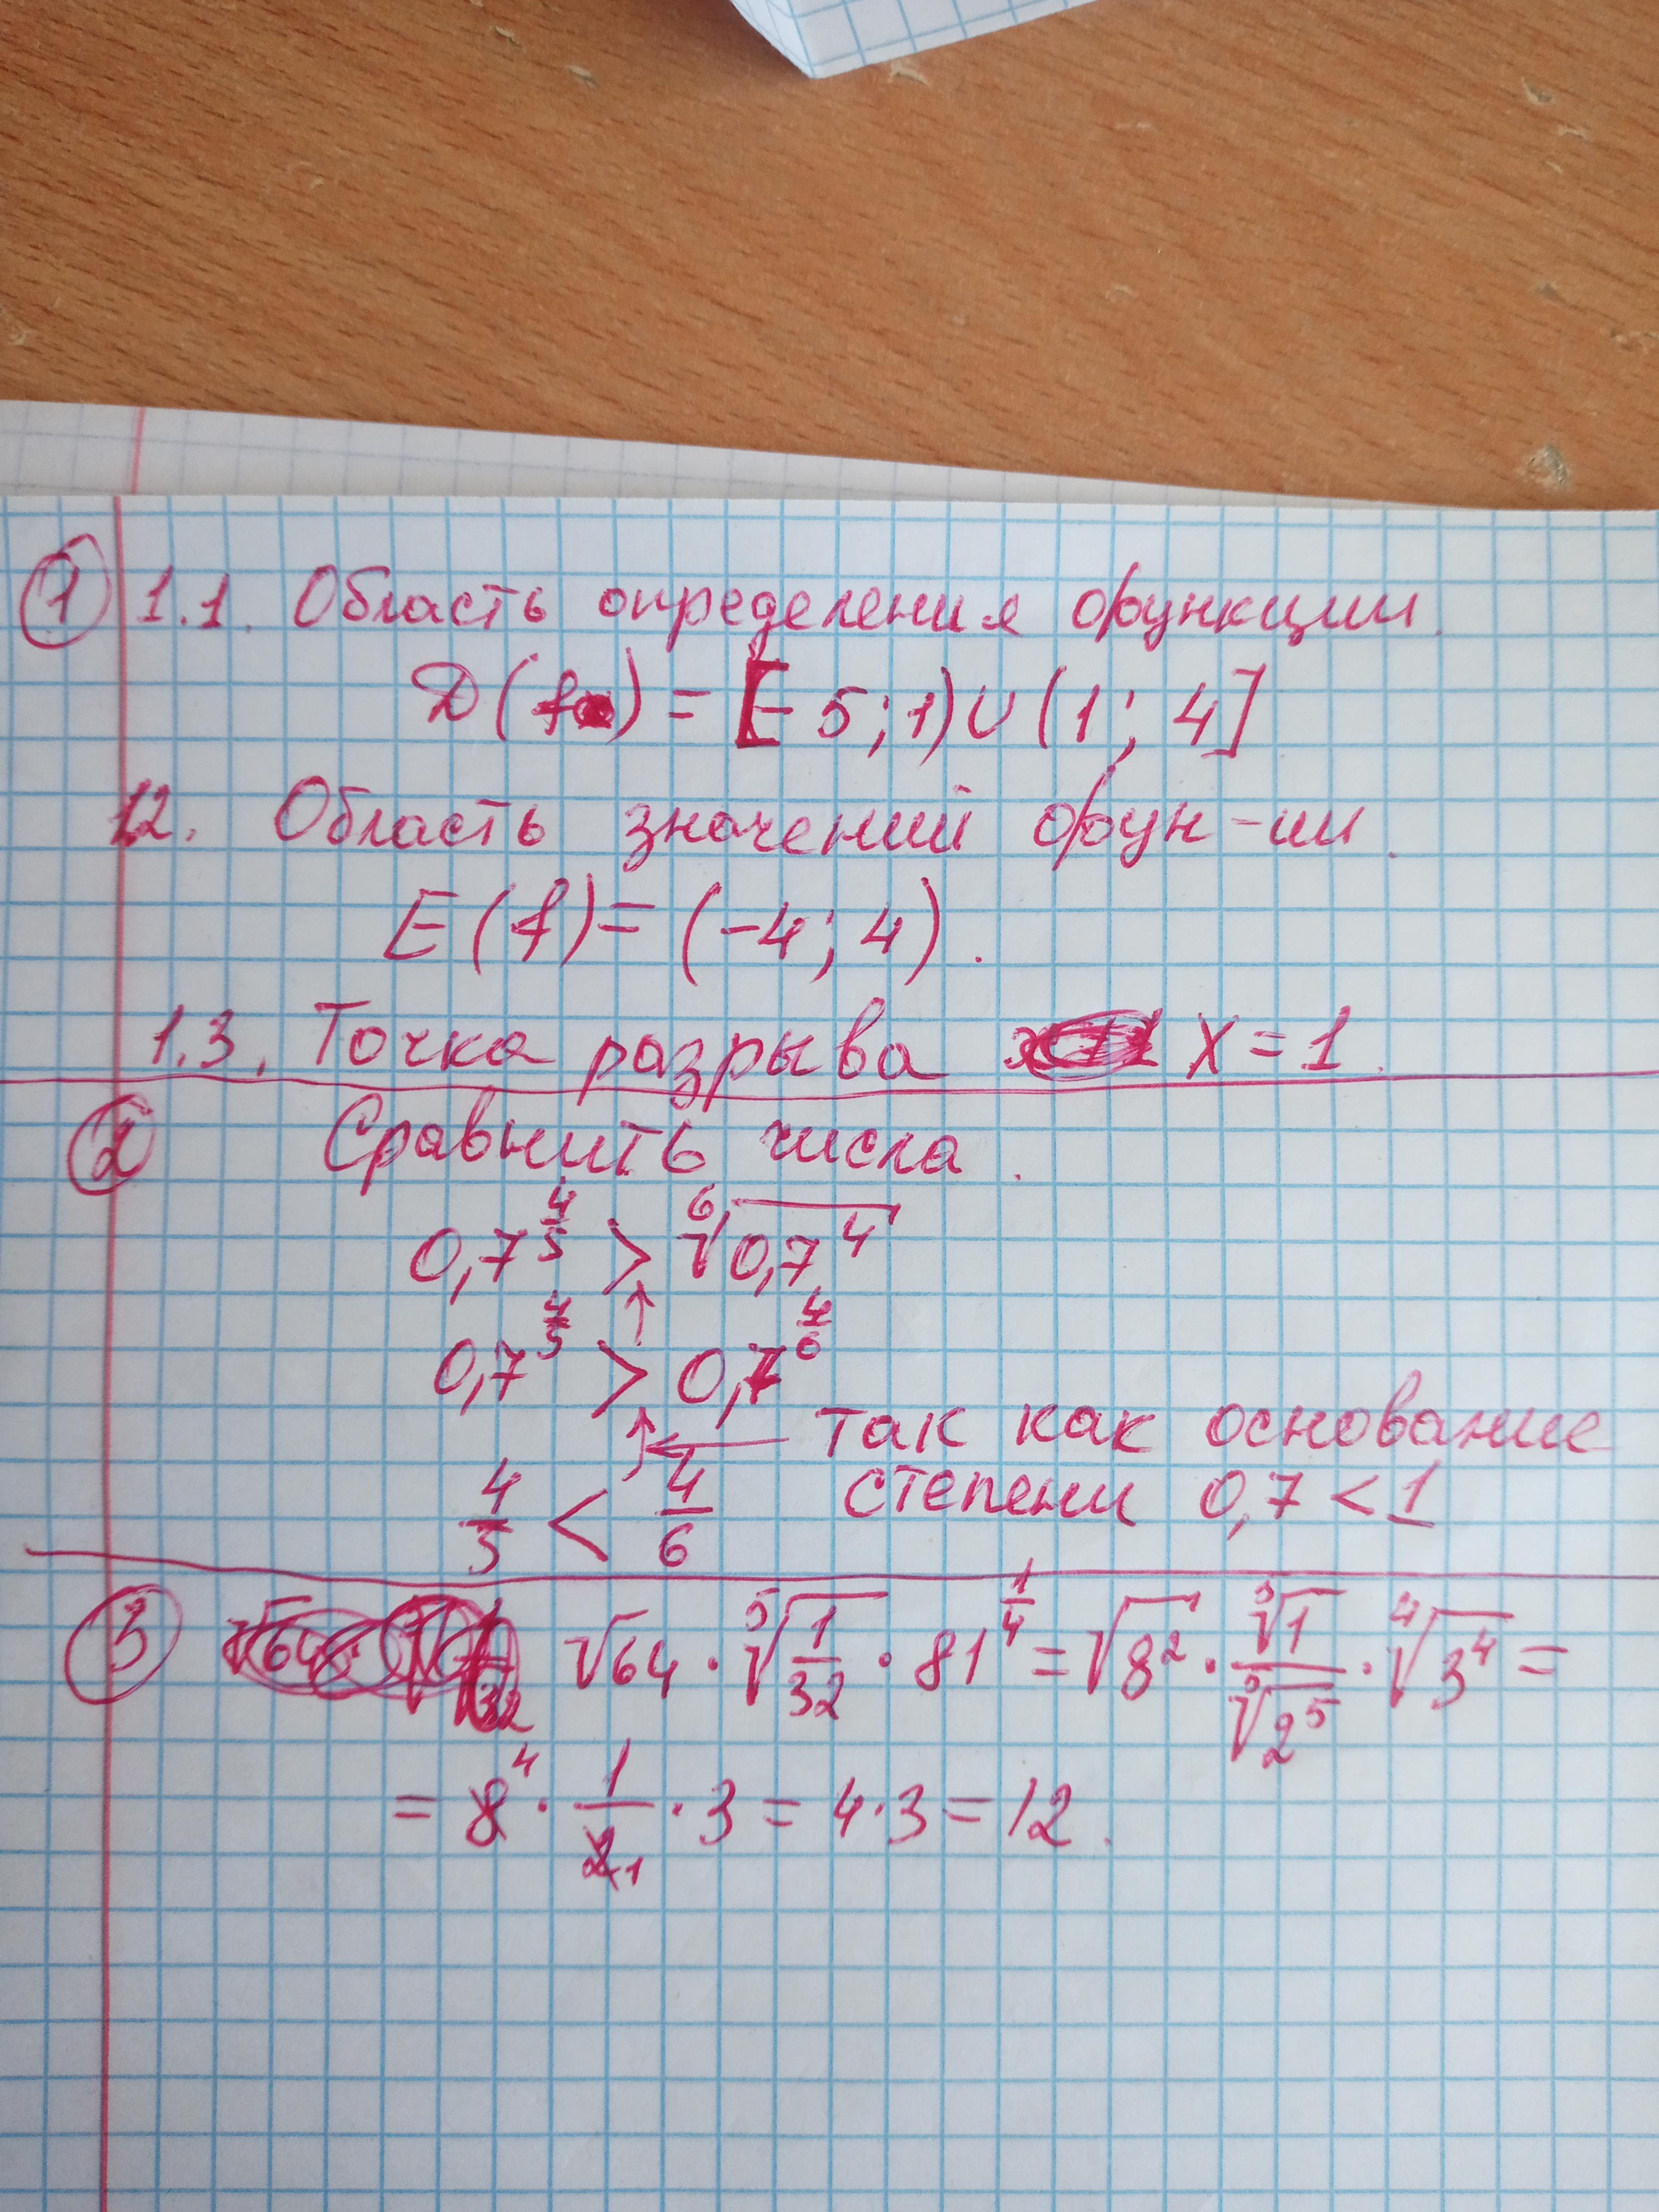 ① 1.1. Область определения функции.
D(f) = [-5; 1) ∪ (1; 4]
1.2. Область значений фун-ии.
E(f) = (-4; 4).
1.3. Точка разрыва x = 1.
② Сравнить числа.
0,7^(4/5) > ⁶√(0,7⁴)
↑
0,7^(4/5) > 0,7^(4/6)
↑ ← так как основание
степени 0,7 < 1
4/5 < 4/6
③ √64 · ⁵√(1/32) · 81^(1/4) = √(8²) · ⁵√1/⁵√(2⁵) · ⁴√(3⁴) =
= 8 4 · 1/2 1 · 3 = 4·3 = 12.